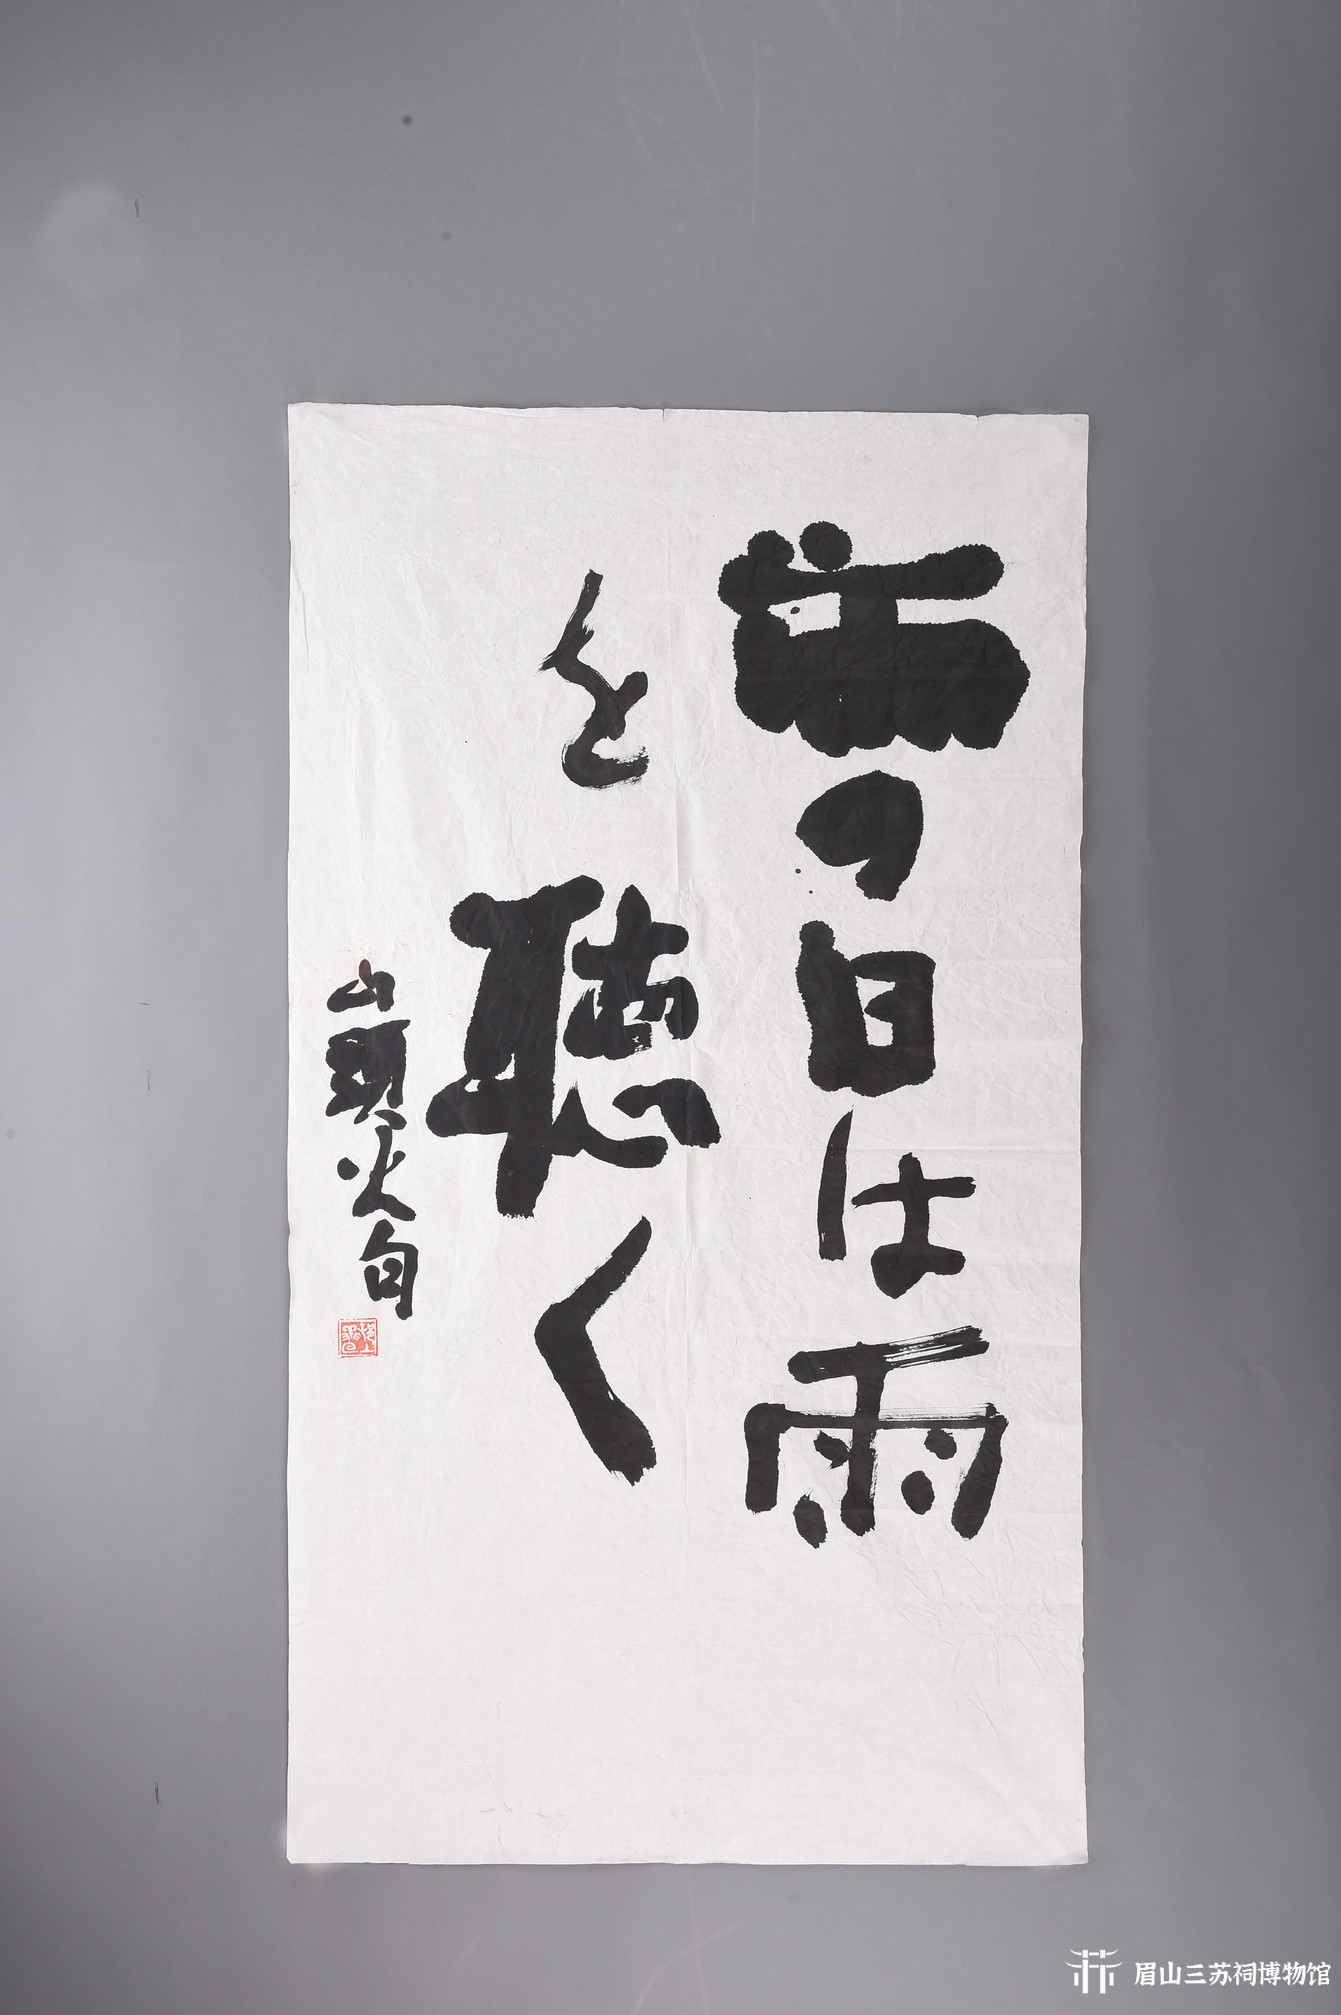 雨の日は雨
を聴く
山頭火句
眉山三苏祠博物馆